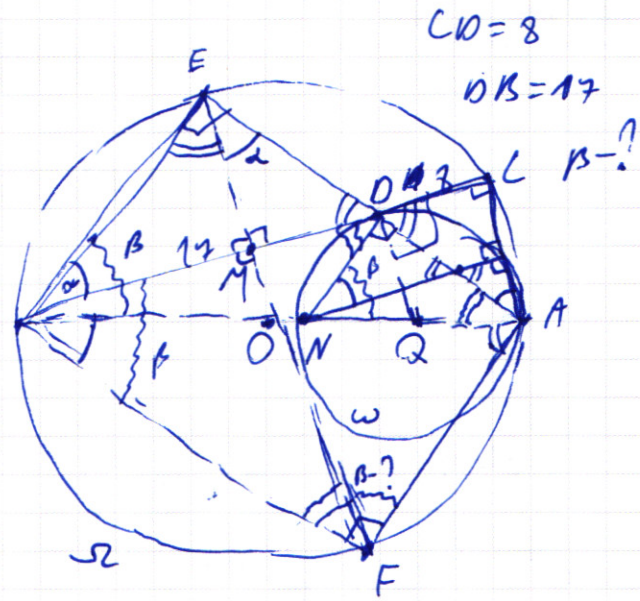 CD = 8
DB = 17
β - ?
E
α
D
8
C
β
17
M
α
β
A
O
N
Q
β
ω
β - ?
Ω
F